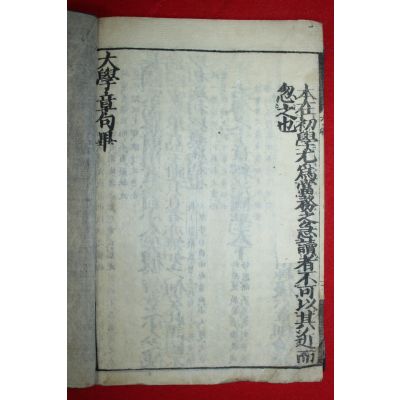 本在初學尤爲當務之急讀者不可以其近而
忽之也
大學章句畢